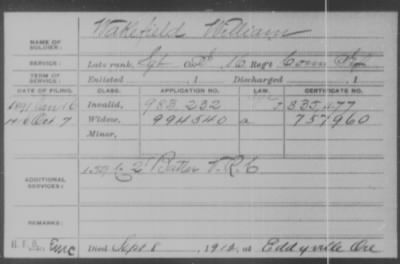 Wakefield William
NAME OF SOLDIER:
SERVICE: Late rank, Sgt Co. D, 16 Reg't Conn Inf
TERM OF SERVICE: Enlisted , 1 Discharged , 1
DATE OF FILING. CLASS. APPLICATION NO. LAW. CERTIFICATE NO.
1891 Jan 16 Invalid, 983.232 335.477
Oct 7 Widow, 994540 a 757,960
Minor,
ADDITIONAL SERVICES: 159 Co 2" Batt'n V.R.C
REMARKS:
Died Sept. 8, 1912, at Eddyville Ore